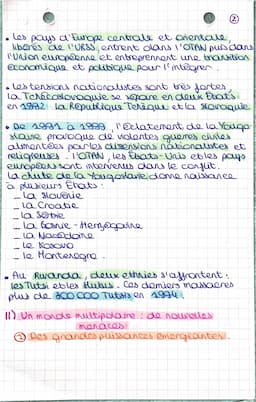 ②
• Les pays d'Europe centrale et orientale,
libérés de l'URSS, entrent dans l'OTAN puis dans
l'Union européenne et entreprennent une transition
économique et politique pour l'intégrer.
• Les tensions nationalistes sont très fortes,
La Tchécoslovaquie se sépare en deux États
en 1992 la République Tchèque et la Slovaquie
• De 1991 à 1999, l'éclatement de la Yougo-
slavie provoque de violentes guerres civiles
alimentées par les dissensions nationalistes et
religieuses. l'OTAN, les États-Unis et les pays
européens sont intervenus dans le conflit.
La chute de la Yougoslavie donne naissance
à plusieurs États:
_ La Slovénie
_ La Croatie
_ La Serbie
_ La Bosnie-Herzégovine
_ La Macédoine
_ Le Kosovo
_ Le Monténégro.
• Au Rwanda, deux ethnies s'affrontent:
les Tutsi et les Hutus. Ces derniers massacrent
plus de 800 000 Tutsis en 1994.
II) Un monde multipolaire: de nouvelles
menaces
① Des grandes puissances émergeantes.